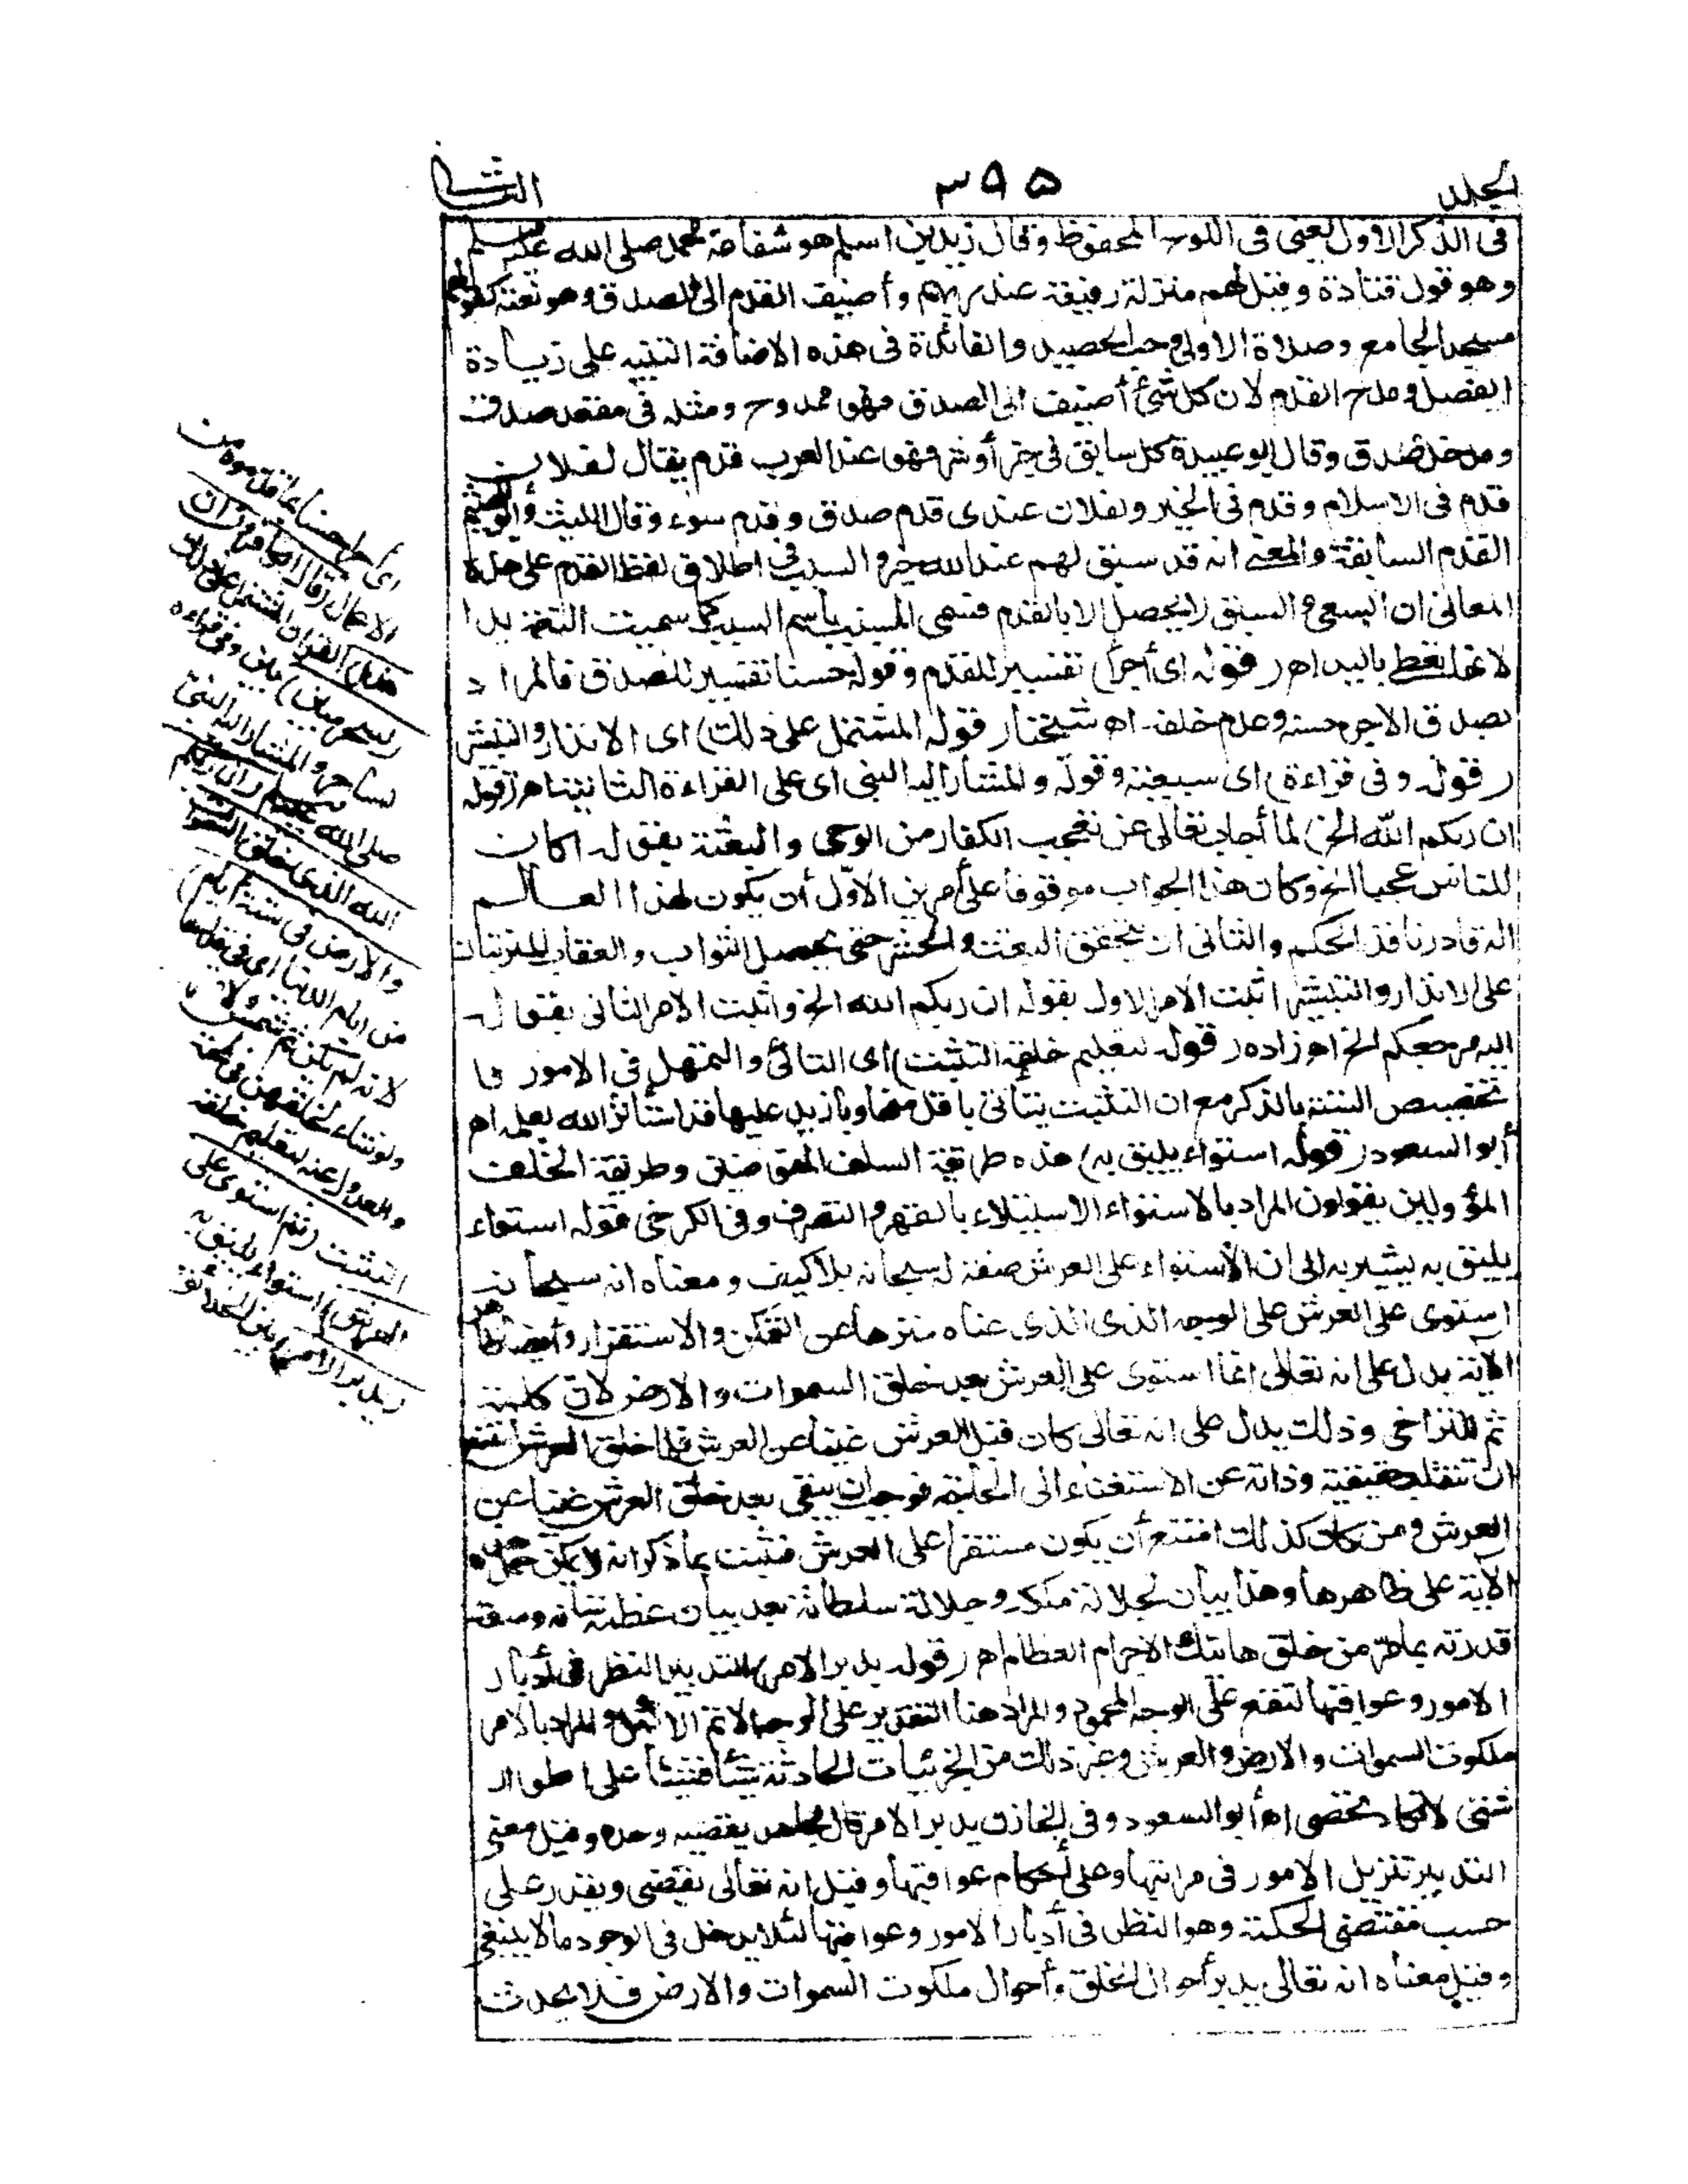 الجلد
٣٩٥
الثانى
فى الذكر الاول يعنى فى اللوح المحفوظ وقال زيد بن اسلم هو شفاعة محمد صلى الله عليه وسلم
وهو قول قتادة وقيل لهم منزلة رفيعة عند ربهم وأضيف القدم الى الصدق وهو نعته كقولهم
مسجد الجامع وصلاة الاولى وحب الحصيد والفائدة فى هذه الاضافة التنبيه على زيادة
الفضل ومدح القدم لان كل شئ أضيف الى الصدق فهو ممدوح ومثله فى مقعد صدق
ومدخل صدق وقال ابو عبيدة كل سابق فى خير أو شر فهو عند العرب قدم يقال لفلان
قدم فى الاسلام وقدم فى الخير ولفلان عندى قدم صدق وقدم سوء وقال الليث وأبو الهيثم
القدم السابقة والمعنى انه قد سبق لهم عند الله خير والسبب فى اطلاق لفظ القدم على هذه
المعانى ان السعى و السبق لا يحصل الا بالقدم فسمى المسبب باسم السبب كما سميت النعمة يدا
لانها تعطى باليد اهـ (قوله اى أجرا) تفسير للقدم وقوله حسنا تفسير للصدق فالمراد
بصدق الاجر حسنه وعدم خلفه اهـ شيخنا (قوله المشتمل على ذلك) اى الانذار والتبشير
(قوله وفى قراءة) اى سبعية وقوله والمشار اليه النبى اى على القراءة الثانية اهـ (قوله
ان ربكم الله الخ) لما أجاب تعالى عن تعجب الكفار من الوحى والبعثة بقوله اكان
للناس عجبا الخ وكان هذا الجواب موقوفا على أمرين الأول أن يكون لهذا العالم
اله قادر نافذ الحكم والثانى ان يتحقق البعث والحشر حتى يحصل الثواب والعقاب المترتبان
على الانذار والتبشير اثبت الامر الاول بقوله ان ربكم الله الخ واثبت الامر الثانى بقوله
اليه مرجعكم الخ اهـ زاده (قوله لتعليم خلقه التثبت) اى التأنى والتمهل فى الامور وما
تخصيص الستة بالذكر مع ان التثبت يتأتى باقل منها وبازيد عليها فقد استأثر الله بعلمه اهـ
أبو السعود (قوله استواء يليق به) هذه طريقة السلف المفوضين وطريقة الخلف
المؤولين يقولون المراد بالاستواء الاستيلاء بالقهر والتصرف وفى الكرخى قوله استواء
يليق به يشير به الى ان الاستواء على العرش صفة له سبحانه بلا كيف ومعناه انه سبحانه
استوى على العرش على الوجه الذى الذى عناه منزها عن التمكن والاستقرار وأيضا ظاهر
الآية يدل على انه تعالى انما استوى على العرش بعد خلق السموات والارض لان كلمة
ثم للتراخى وذلك يدل على انه تعالى كان قبل العرش غنيا عن العرش فلما خلق العرش امتنع
ان تنقلب حقيقته وذاته عن الاستغناء الى الحاجة فوجب ان يبقى بعد خلق العرش غنيا عن
العرش ومن كان كذلك امتنع أن يكون مستقرا على العرش فثبت بما ذكر انه لا يمكن حمل هذه
الآية على ظاهرها وهذا بيان لجلالة ملكه وجلالة سلطانه بعد بيان عظمة شانه وسعة
قدرته بما مرّ من خلق هاتيك الاجرام العظام اهـ (قوله يدبر الامر) التدبير النظر فى أدبار
الامور وعواقبها لتقع على الوجه المحمود والمراد هنا التقدير على الوجه الاتم الاكمل والمراد بالامر
ملكوت السموات والارض والعرش وغير ذلك من الجزئيات الحادثة شيئا فشيئا على اطوار
شتى لا تكاد تحصى اهـ أبو السعود وفى الخازن يدبر الامر قال مجاهد يقضيه وحده وقيل معنى
التدبير تنزيل الامور فى مراتبها وعلى أحكام عواقبها وقيل انه تعالى يقضى ويقدر على
حسب مقتضى الحكمة وهو النظر فى أدبار الامور وعواقبها لئلا يدخل فى الوجود ما لا ينبغى
وقيل معناه انه تعالى يدبر أحوال الخلق وأحوال ملكوت السموات والارض فلا يحدث
اى أجرا حسنا بما قدموه من
الاعمال (قال الكافرون ان
هذا) القرآن المشتمل على ذلك
(لسحر مبين) بين وفى قراءة
لساحر والمشار اليه النبى
صلى الله عليه وسلم (ان ربكم
الله الذى خلق السموات
والارض فى ستة ايام)
من ايام الدنيا اى فى قدرها
لانه لم يكن ثم شمس ولا قمر
ولو شاء لخلقهن فى لمحة
والعدول عنه لتعليم خلقه
التثبت (ثم استوى على
العرش) استواء يليق به
(يدبر الامر) بين الخلائق